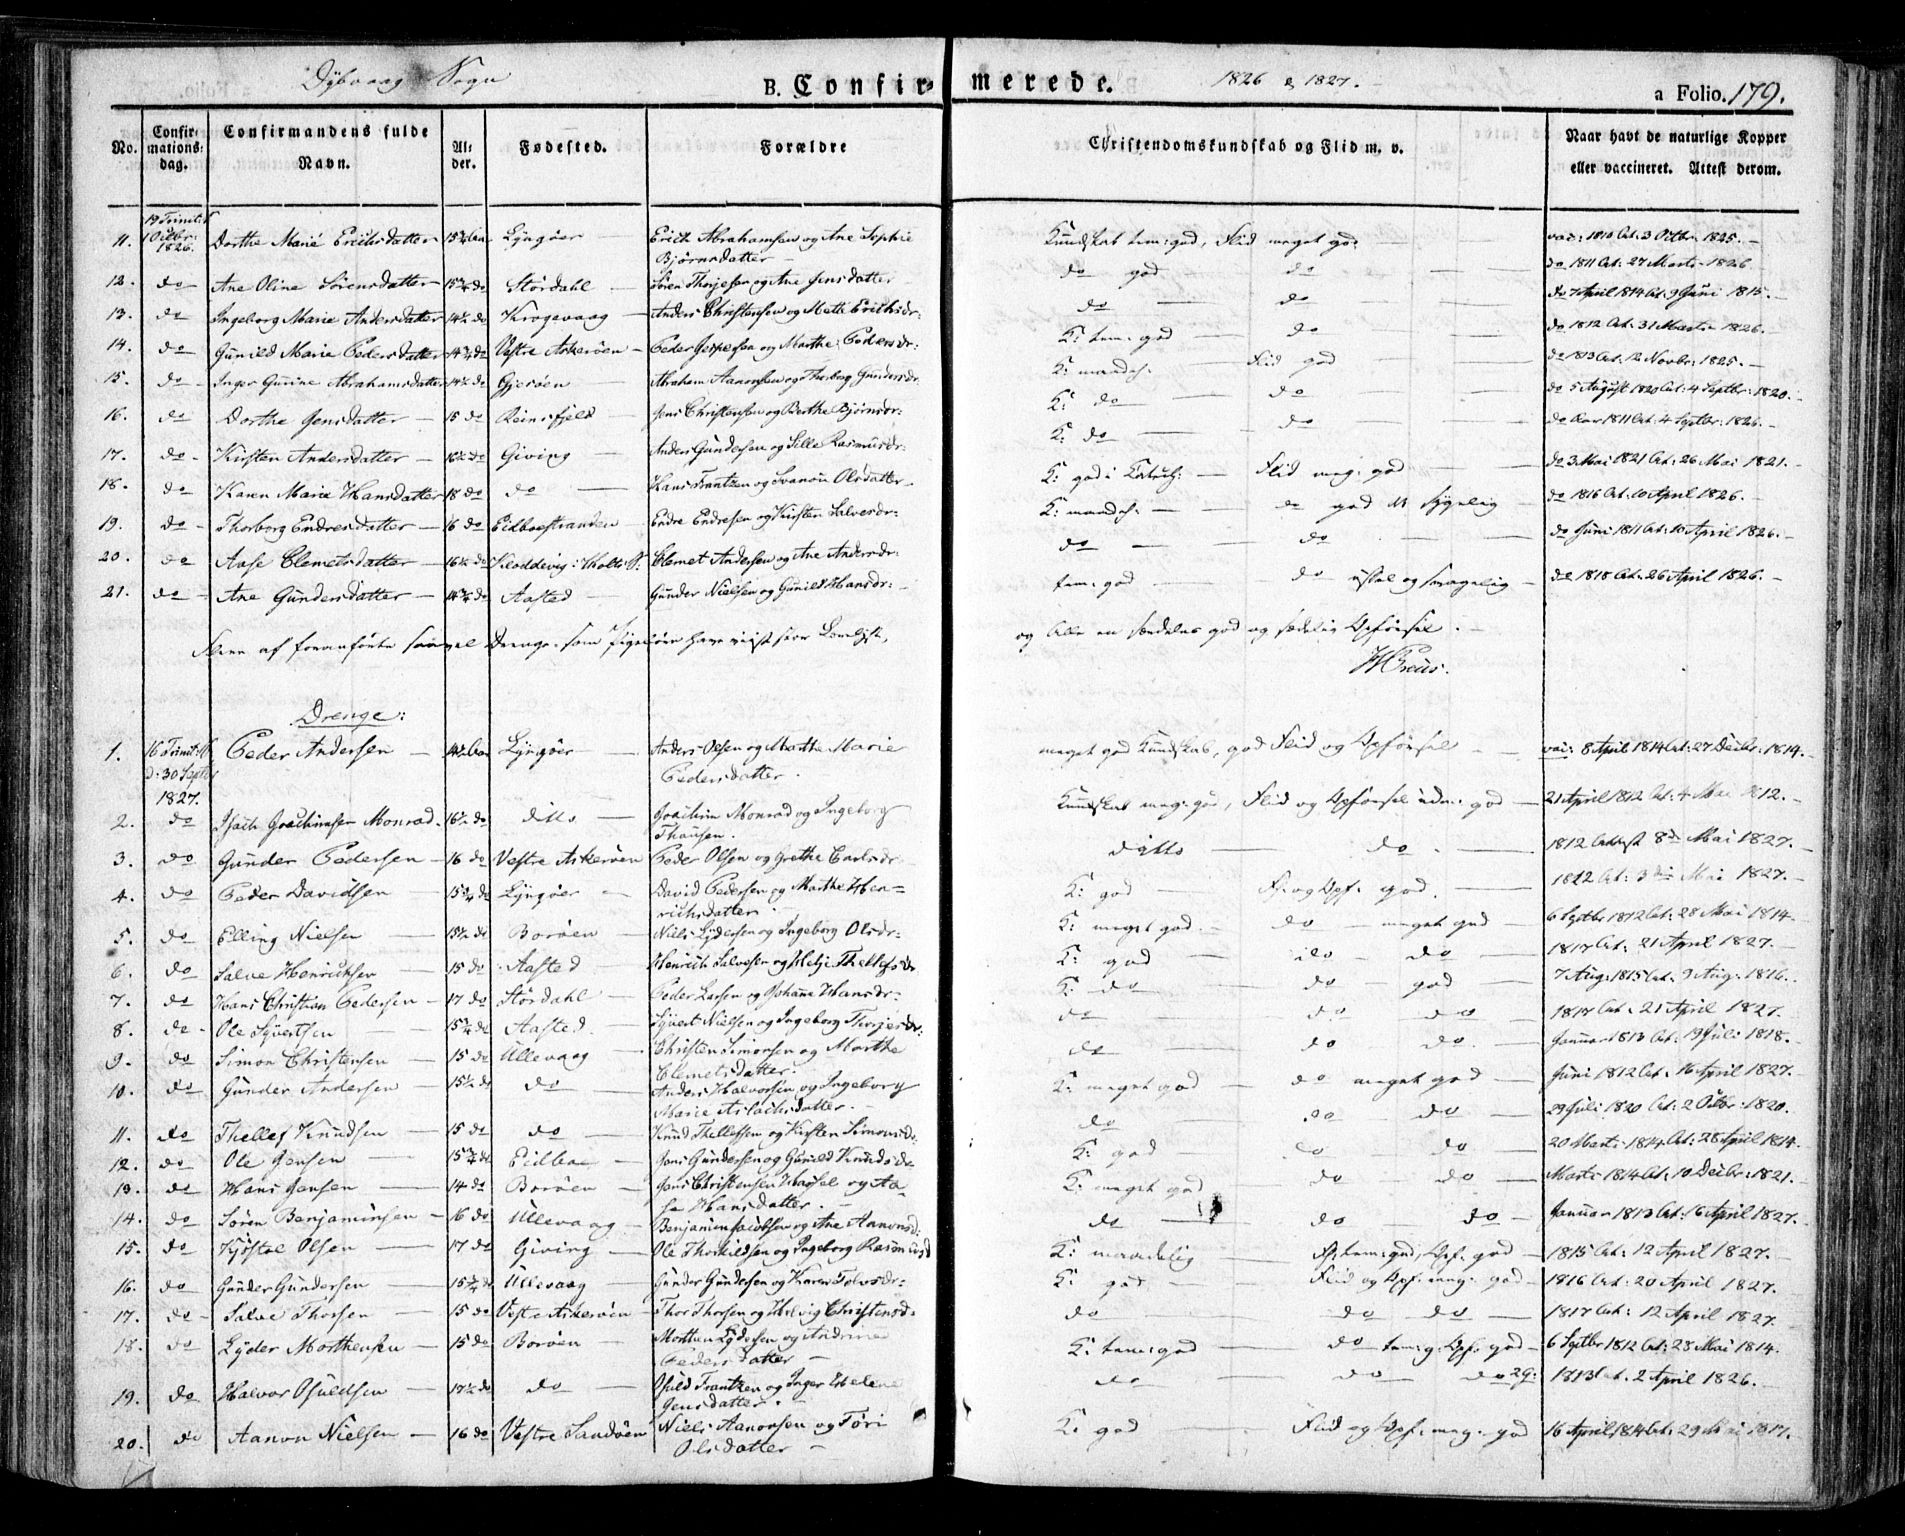 Dybvaag Sogn B. Confirmerede. 1826 & 1827. a Folio. 179.
No. Confirmationsdag. Confirmandens fulde Navn. Alder. Fødested. Forældre Christendomskundskab og Flid m. v. Naar havt de naturlige Kopper eller vaccineret. Attest derom.
19 Trinit:
11. 1 Octbr: 1826. Dorthe Marie Erichsdatter 15 3/4 Lyngøer Erich Abrahamsen og Ane Sophie Kundskab tem: god, Flid meget god vac: 1810 At: 3 Octbr. 1825.
Bjørnsdatter
12. do Ane Oline Sørensdatter 15 3/4 do Stördahl Søren Thorjesen og Ane Jensdatter do god do do 1811 At: 27 Marts 1826
13. do Ingeborg Marie Andersdatter 14 1/2 do Krogevaag Anders Christensen og Mette Erichsdr: do do do 7 April 1814 At: 9 Juni 1815.
14. do Gunild Marie Pedersdatter 14 3/4 do Vestre Askerøen Peder Jespesen og Marthe Pedersdr: K: tem: god do do 1812 At: 31 Marts 1826.
15. do Inger Gurine Abrahamsdatter 14 1/2 do Gjerøen Abraham Aanonsen og Thorborg Gundersdr. K: maadel: Flid god do 1813 At: 12 Novbr: 1825.
16. do Dorthe Jensdatter 15 do Reinsfjeld Jens Christensen og Berthe Bjørnsdr: K: do do do 5 August 1820 At: 4 Septbr: 1820.
17. do Kirsten Andersdatter 16 1/2 do Giving Anders Gundersen og Sille Rasmusdr: K: do do do 1811 At: 4 Septbr: 1826.
18. do Karen Marie Hansdatter 18 do do Hans Frantzen og Svanou Olsdatter K: god i Flid meg: god do 3 Mai 1821 At: 26 Mai 1821.
19. do Thorborg Endresdatter 16 do Eidboestranden Endre Endresen og Kirsten Salvesdr: K: maadel: do god do 1816 At: 10 April 1826.
20. do Aase Clemetsdatter 16 1/2 do Kloddevig: Holts S: Clemet Andersen og Ane Andersdr: do do do Juni 1811 At: 10 April 1826.
21. do Ane Gundersdatter 14 3/4 do Aasted Gunder Nielsen og Gunild Hansdr: tem: god do og do 1818 At: 26 April 1826.
af foranførte saavel Drenge som Pigebørn have viist stor Lærelyst, og Alle en særdeles god og sædelig Opførsel.
HCreus.
Drenge:
1. 16 Trinit: Peder Andersen 14 1/2 Aar Lyngøer Anders Olsen og Marthe Marie meget god Kundskab, god Flid og Opførsel vac: 8 April 1814 At: 27 Decbr: 1814.
d: 30 Septbr Pedersdatter.
1827.
2. do Isach Joachimsen Monrad 16 1/2 do ditto Joachim Monrad og Ingeborg Kundskab meg: god, Flid og Opførsel god 21 April 1812 At: 4 Mai 1812.
Thausen.
3. do Gunder Pedersen 16 do Vestre Askerøen Peder Olsen og Grethe Carlsdr ditto do 1812 Attest 8de Mai 1827.
4. do Peder Davidsen 15 3/4 do Lyngøer David Pedersen og Marthe Hen= K: god Fl: og Opf: god 1812 At: 3die Mai 1827.
richsdatter.
5. do Elling Nielsen 15 1/2 do Borøen Niels Lydersen og Ingeborg Olsdr: K: meget god do meget god 6 Septbr 1812 At: 28 Mai 1814
6. do Salve Henriksen 15 do Aasted Henrich Salvesen og Helje Thellefsdr K: god do do 1817 At: 21 April 1827.
7. do Hans Christian Pedersen 17 do Stördahl Peder Larsen og Johanne Hansdr: K: do do god 7 Aug: 1815 At: 9 Aug: 1816.
8. do Ole Syvertsen 15 3/4 do Aasted Syvert Nielsen og Ingeborg Thorjesdr: do do do 1817 At: 21 April 1827.
9. do Simon Christensen 15 do Ullevaag Christen Simonsen og Marthe do do do Januar 1813 At: 19 Juli 1818.
Clemetsdatter.
10. do Gunder Andersen 15 1/2 do do Anders Halvorsen og Ingeborg K: meget god do meget god Juni 1812 At: 16 April 1827.
Marie Aslachsdatter.
11. do Thellef Knudsen 15 do do Knud Thellefsen og Kirsten Simonsd: do do do 29 Juli 1820 At: 2 Octbr: 1820.
12. do Ole Jensen 15 3/4 do Eidboe Jens Gundersen og Gunild Knudsdr K: god do do 20 Marts 1814 At: 28 April 1814.
13. do Hans Jensen 14 do Borøen Jens Christensen Hassel og Aa= K: meget god do do Marts 1814 At: 10 Decbr: 1821.
se Hansdatter.
14. do Søren Benjaminsen 16 do Ullevaag Benjamin Jacobsen og Ane Aanonsd: do do do Januar 1813 At: 16 April 1827.
15. do Kjøstol Olsen 17 do Giving Ole Thorkildsen og Ingeborg Rasmusd K: maadelig Fl: tem: god, Opf: god 1815 At: 12 April 1827.
16. do Gunder Gundersen 15 3/4 do Ullevaag Gunder Gundersen og Karen Tolvsdr: K: god Flid og Opf: meg: god 1816 At: 20 April 1827.
17. do Salve Thorsen 15 do Vestre Askerøen Thor Thorsen og Helvig Christensd: do do do 1817 At: 12 April 1827.
18. do Lyder Morthensen 15 do Borøen Morthen Lydersen og Andrine K: tem: god do tem: g: Opf: god 6 Septbr 1812 At: 28 Mai 1814.
Pedersdatter
19. do Halvor Osuldsen 17 1/2 do do Osuld Frantzen og Inger Helene do do do 1813 At. 2 April 1826.
Jensdatter.
20. do Aanon Nielsen 16 do Vestre Sandøen Niels Aanonsen og Tøri K: god Flid og Opf: meg: god 16 April 1814 At: 29 Mai 1817.
Olsdatter